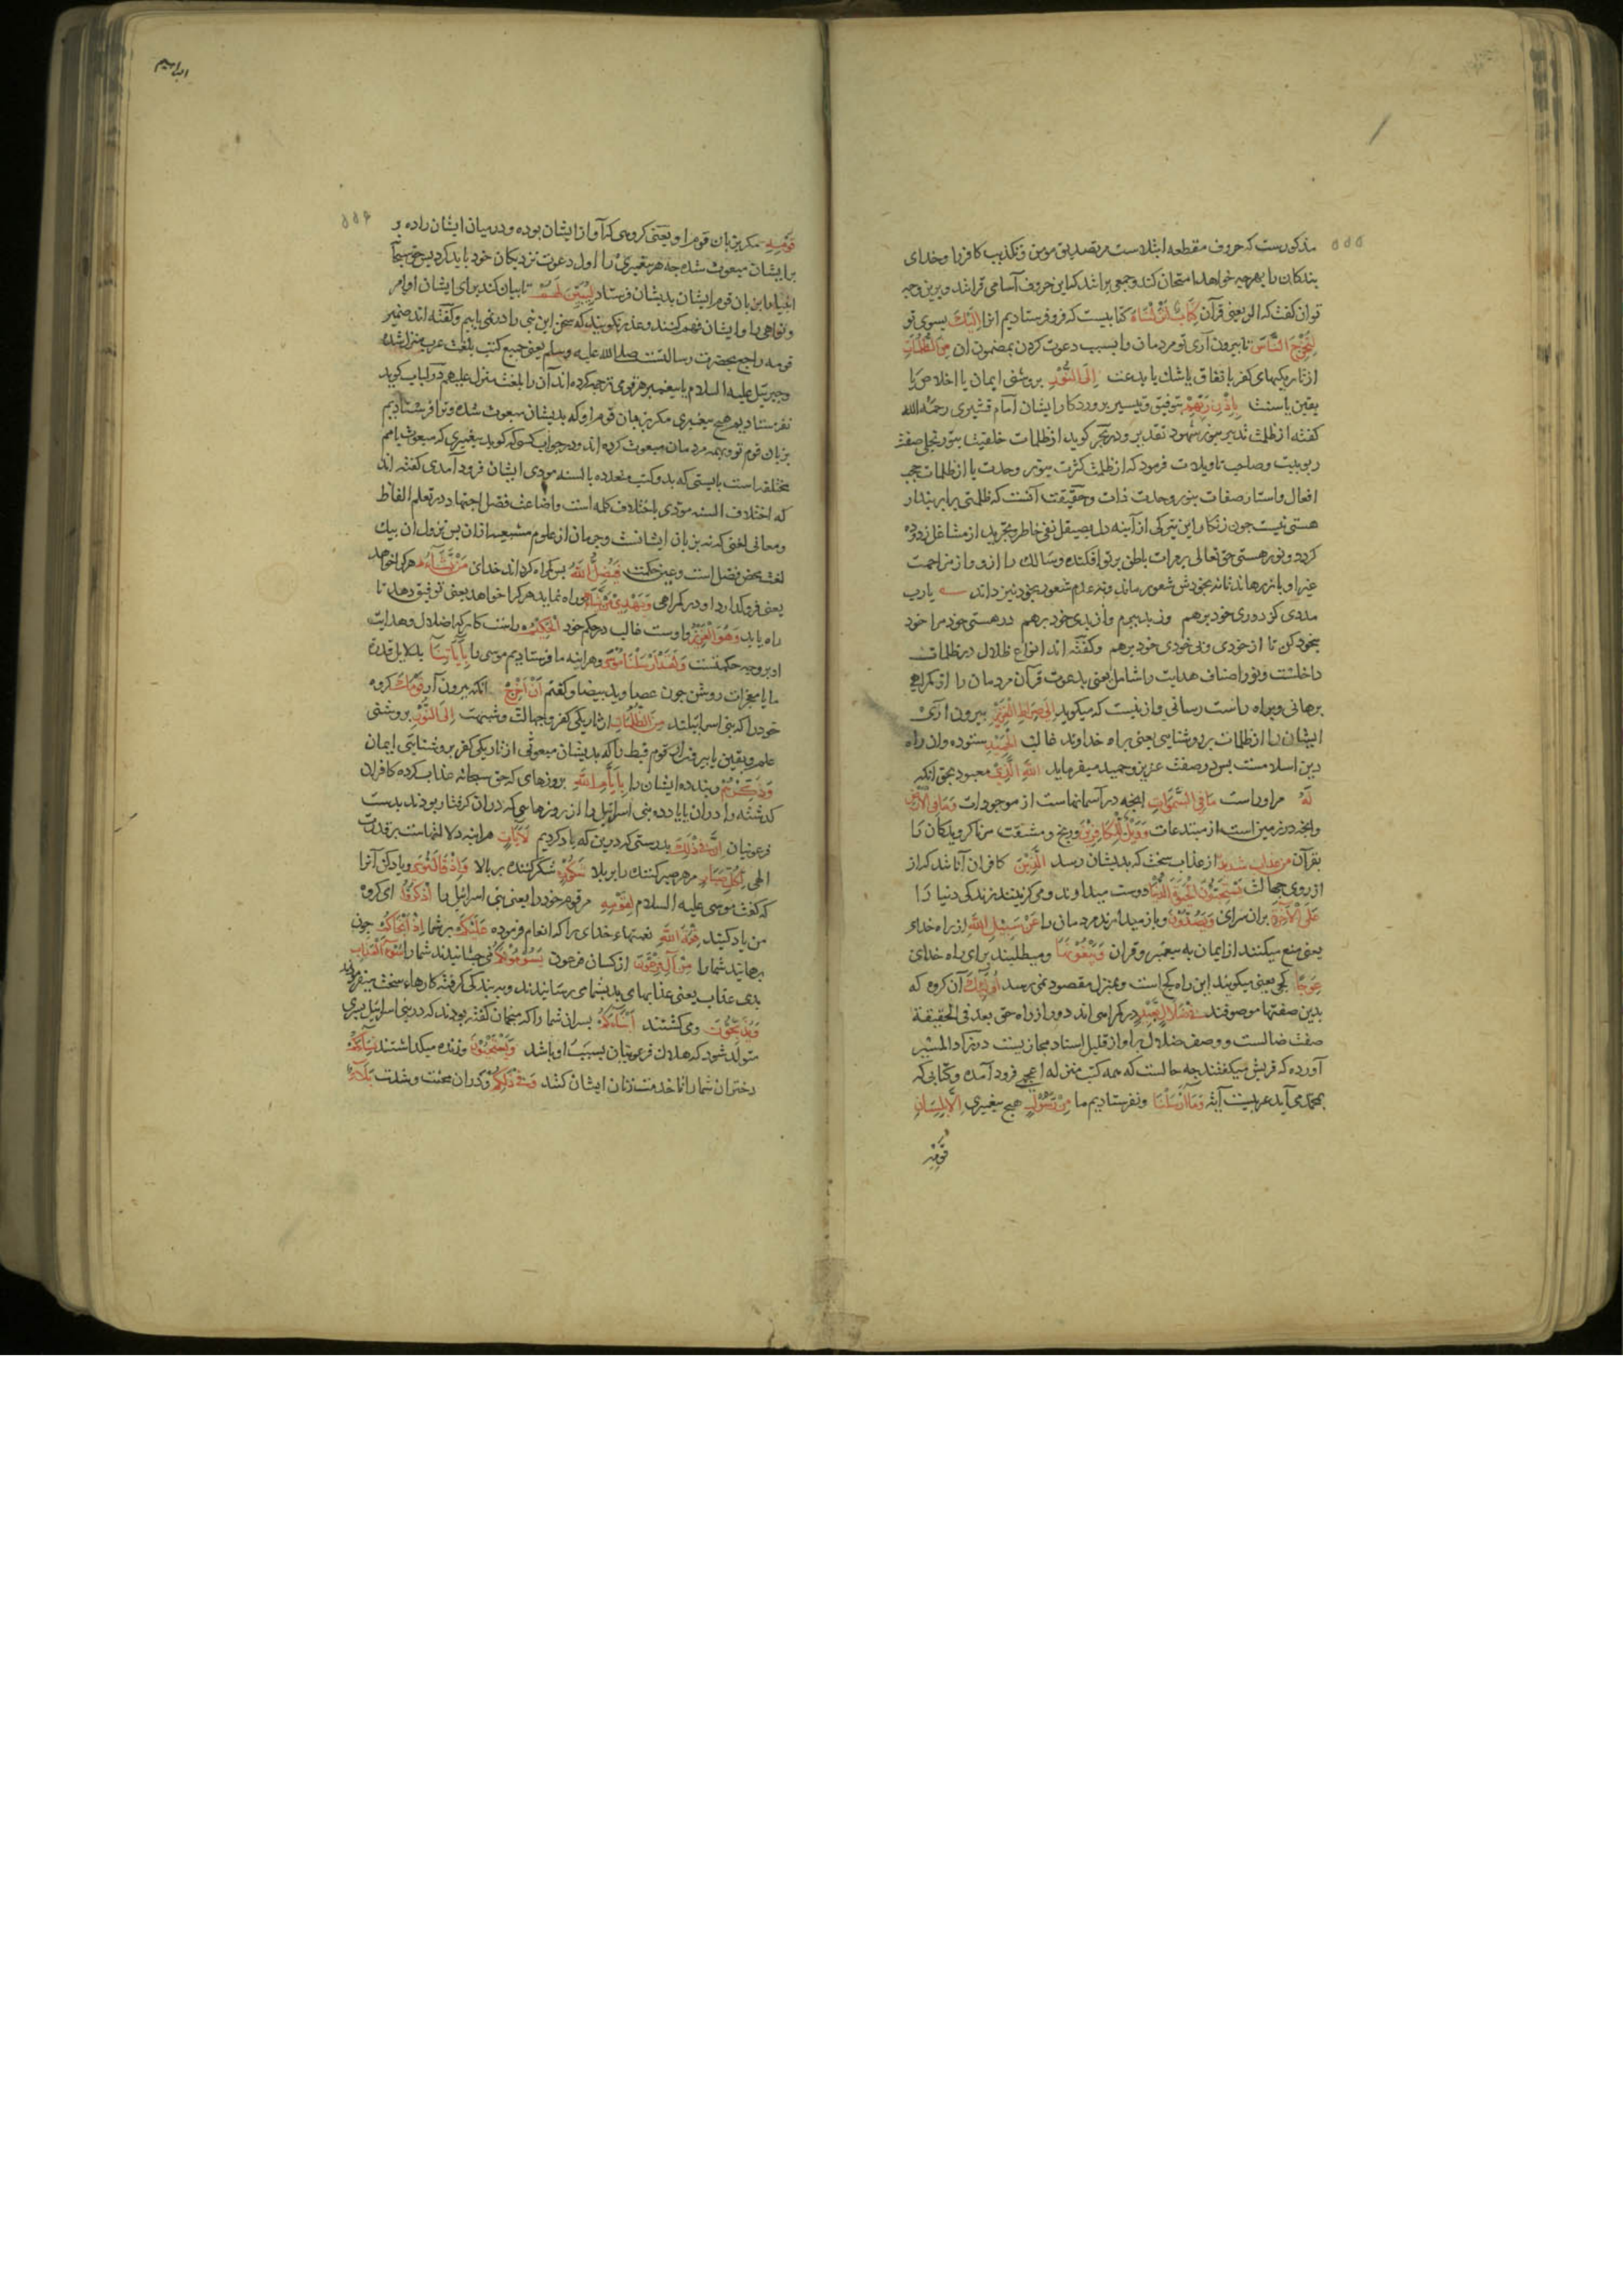 ۵۵۵
مذکورست که حروف مقطعه ابتلاست مر تصدیق مومن و تکذیب کافر را و خدای
بندکان را بهرچه خواهد امتحان کند و جمعی برانند که این حروف آسامی قرانند و برین وجه
توان کفت که الر یعنی قرآن كِتَابٌ أَنْزَلْنَاهُ کتابیست که فرو فرستادیم انرا إِلَيْكَ بسوی تو
لِتُخْرِجَ النَّاسَ تا بیرون آری تو مردمان را بسبب دعوت کردن بمضمون ان مِنَ الظُّلُمَاتِ
از تاریکیهای کفر یا نفاق یا شك یا بدعت إِلَى النُّورِ بروشنی ایمان یا اخلاص یا
یقین یا سنت بِإِذْنِ رَبِّهِمْ بتوفیق و تیسیر پروردکار ایشان امام قشیری رحمه الله
کفته از ظلمت تدبیر بنور شهود تقدیر و در بحر کوید از ظلمات خلقیت بنور تجلی صفت
ربوبیت و صاحب تاویلات فرمود که از ظلمت کثرت بنور وحدت یا از ظلمات حجب
افعال و استار صفات بنور وحدت ذات و حقیقت آنست که ظلمتی برابر پندار
هستی نیست چون زنکار این تیرکی از آینه دل بصیقل نفی خاطر و تجرید از مشاغل زدوده
کردد و نور هستی حق تعالی بر مرات باطن پرتو افکنده و سالك را از و و از مزاحمت
غیر او باز رهاند تا نه بخودش شعور ماند و نه عدم شعور بخود نیز داند یارب
مددی کز دوری خود برهم وز بد ببرم و از بدی خود برهم در هستی خود مرا خود
بیخود کن تا از خودی و بی خودی خود برهم و کفته اند انواع ظلال در ظلمات
داخلست و نور اصناف هدایت را شامل یعنی بدعوت قرآن مردمان را از کمراهی
برهانی و براه راست رسانی و ازینست که میکوید إِلَى صِرَاطِ الْعَزِيزِ بیرون آری
ایشان را از ظلمات بروشنایی یعنی براه خداوند غالب الْحَمِيدِ ستوده و ان راه
دین اسلامست پس در صفت عزیز و حمید میفرماید اللهِ الَّذِي معبود بحق انکه
لَهُ مر او راست مَا فِي السَّمَوَاتِ انچه در آسمانهاست از موجودات وَمَا فِي الْأَرْضِ
وانچه در زمین است از مبتدعات وَوَيْلٌ لِلْكَافِرِينَ و رنج و مشقت مر ناکرویدکان را
بقرآن مِنْ عَذَابٍ شَدِيدٍ از عذاب سخت که بدیشان رسد الَّذِينَ کافران آنانند که از
از روی جهالت يَسْتَحِبُّونَ الْحَيَوةَ الدُّنْيَا دوست میدارند و می کزینند زندکی دنیا را
عَلَى الْآخِرَةِ بران سرای وَيَصُدُّونَ و باز میدارند مردمان را عَنْ سَبِيلِ اللهِ از راه خدای
یعنی منع میکنند از ایمان به پیغمبر و قران وَيَبْغُونَهَا و میطلبند برای راه خدای
عِوَجًا کجی یعنی میکویند این راه کج است و بمنزل مقصود نمی رسد أُولَئِكَ آن کروه که
بدین صفتها موصوفند فِي ضَلَالٍ بَعِيدٍ در کمراهی اند دور از راه حق بعد فی الحقیقة
صفت ضالست و وصف ضلال براو از قلیل اسناد مجازیست در زاد المسیر
آورده که قریش میکفتند چه حالست که همه کتب منزله اعجمی فرود آمده و کتابی که
بمحمد می آید عربیست آیه وَمَا أَرْسَلْنَا و نفرستادیم ما مِنْ رَسُولٍ هیچ پیغمبری إِلَّا بِلِسَانِ
قَوْمِهِ
ابراهیم
۵۵۶
قَوْمِهِ مکر بزبان قوم او یعنی کروهی که او از ایشان بوده و در میان ایشان زاده و
بر ایشان مبعوث شده چه هر پیغمبری را اول دعوت نزدیکان خود باید کرد پس حق سبحانه
انبیا را بزبان قوم ایشان بدیشان فرستاد لِيُبَيِّنَ لَهُمْ تا بیان کند برای ایشان اوامر
و نواهی را و ایشان فهم کنند و عذر نکویند که سخن این نبی را در نمی یابیم و کفته اند ضمیر
قومه راجع بحضرت رسالتست صلی الله علیه وسلم یعنی جمیع کتب بلغت عرب منزل شده
و جبرئیل علیه السلام یا پیغمبر هر قومی ترجمه کرده اند آن را بلغت منزل علیهم در لباب کوید
نفرستادیم هیچ پیغمبری مکر بزبان قوم او که بدیشان مبعوث شده و ترا فرستادیم
بزبان قوم تو و بهمه مردمان مبعوث کرده اند و در جواب کسی که کوید پیغمبری که مبعوث بامم
مختلفه است بایستی که بدو کتب متعدده بالسنه مودی ایشان فرود آمدی کفته اند
که اختلاف السنه مؤدی باختلاف کلمه است و اضاعت فضل اجتهاد در تعلم الفاظ
و معانی لغتی که نه بزبان ایشانست و حرمان از علوم متشعبه ازان پس نزول ان بیك
لغت محض فضل است و عین حکمت فَيُضِلُّ اللهُ پس کمراه کرداند خدای مَنْ يَشَاءُ هرکرا خواهد
یعنی فروکذارد او در کمراهی وَيَهْدِي مَنْ يَشَاءُ و راه نماید هرکرا خواهد یعنی توفیق دهد تا
راه یابد وَهُوَ الْعَزِيزُ و اوست غالب در حکم خود الْحَكِيمُ راست کار که اضلال و هدایت
او بر وجه حکمتست وَلَقَدْ أَرْسَلْنَا مُوسَى و هراینه ما فرستادیم موسی را بِآيَاتِنَا بدلایل قدرة
ما یا معجزات روشن چون عصا و ید بیضا و کفتم أَنْ أَخْرِجْ انکه بیرون آر قَوْمَكَ کروه
خود را که بنی اسرائیلند مِنَ الظُّلُمَاتِ از تاریکی کفر و جهالت و شبهت إِلَى النُّورِ بروشنی
علم و یقین یا بیرون ار قوم قبط را که بدیشان مبعوثی از تاریکی کفر بروشنایی ایمان
وَذَكِّرْهُمْ و پند ده ایشان را بِأَيَّامِ اللهِ بروزهای که حق سبحانه عذاب کرده کافران
کذشته را دران یا یاد ده بنی اسرائیل را از روزهایی که دران کرفتار بودند بدست
فرعونیان إِنَّ فِي ذَلِكَ بدرستی که درین که یاد کردیم لَآيَاتٍ هراینه دلالتهاست بر قدرت
الهی لِكُلِّ صَبَّارٍ مر هر صبر کننده را بر بلا شَكُورٍ شکر کننده بر بالا وَإِذْ قَالَ مُوسَى و یاد کن آنرا
که کفت موسی علیه السلام لِقَوْمِهِ مر قوم خود را یعنی بنی اسرائیل را اذْكُرُوا ای کروه
من یاد کنید نِعْمَةَ اللهِ نعمتهاء خدای را که انعام فرموده عَلَيْكُمْ بر شما إِذْ أَنْجَاكُمْ چون
برهانید شما را مِنْ آلِ فِرْعَوْنَ از کسان فرعون يَسُومُونَكُمْ می چشانیدند شما را سُوءَ الْعَذَابِ
بدی عذاب یعنی عذابهای بد بشما می رسانیدند و به بندکی کرفته کارهاء سخت میفرمودند
وَيُذَبِّحُونَ و می کشتند أَبْنَاءَكُمْ پسران شما را که منجمان کفته بودند که در بنی اسرائیل پسری
متولد شود که هلاك فرعونیان بسبب او باشد وَيَسْتَحْيُونَ و زنده میکذاشتند نِسَاءَكُمْ
دختران شما را تا خدمت زنان ایشان کنند وَفِي ذَلِكُمْ و دران محنت و شدت بَلَاءٌ